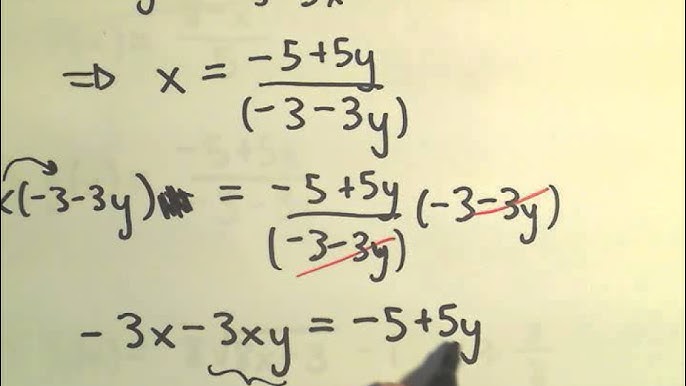 ⇒ x = (-5+5y)/(-3-3y)
x(-3-3y) = (-5+5y)/(-3-3y) (-3-3y)
-3x-3xy = -5+5y